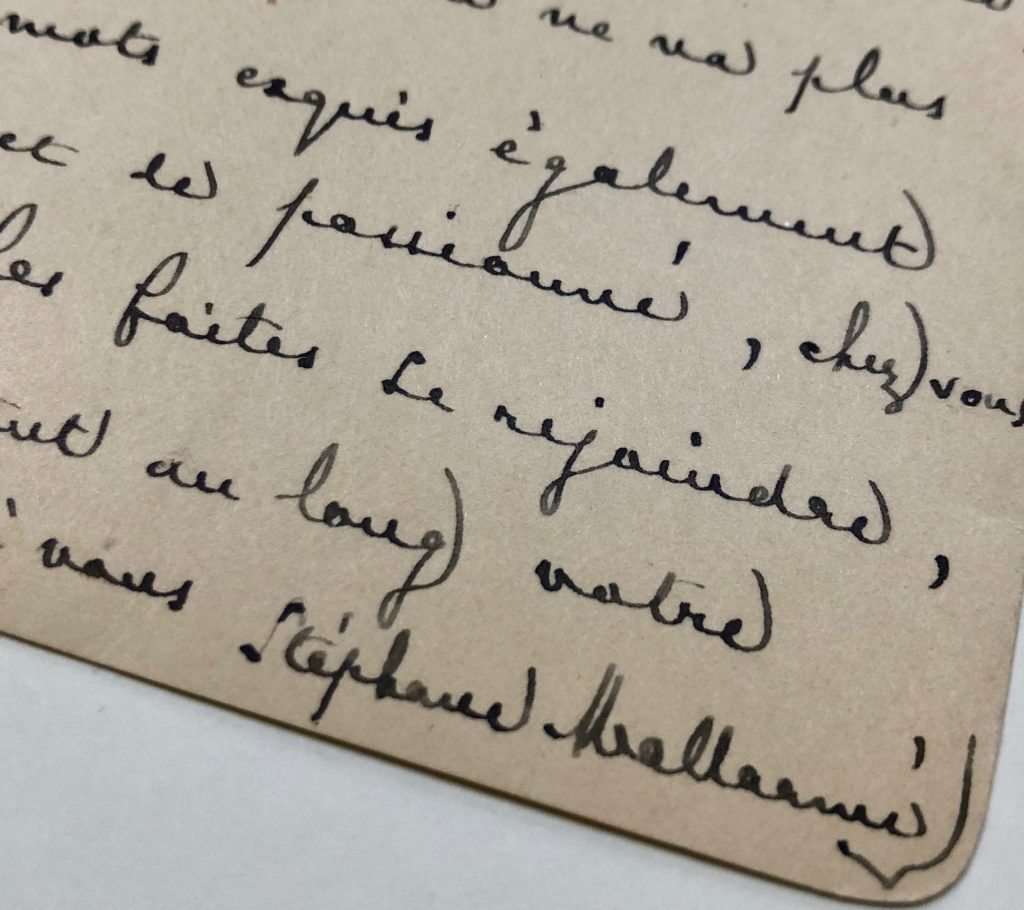 ne va plus
mots exquis également
et le passionné, chez vous
les faites se rejoindre,
au long votre
à vous Stéphane Mallarmé